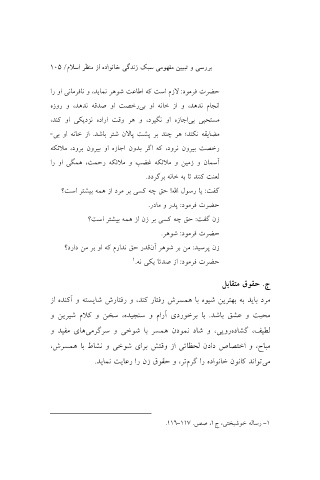 بررسی و تبیین مفهومی سبک زندگی خانواده از منظر اسلام/ ۱۰۵
حضرت فرمود: لازم است که اطاعت شوهر نماید، و نافرمانی او را
انجام ندهد، و از خانه او بی‌رخصت او صدقه ندهد، و روزه
مستحبی بی‌اجازه او نگیرد، و هر وقت اراده نزدیکی او کند،
مضایقه نکند؛ هر چند بر پشت پالان شتر باشد. از خانه او بی-
رخصت بیرون نرود، که اگر بدون اجازه او بیرون برود، ملائکه
آسمان و زمین و ملائکه غضب و ملائکه رحمت، همگی او را
لعنت کنند تا به خانه برگردد.
گفت: یا رسول الله! حق چه کسی بر مرد از همه بیشتر است؟
حضرت فرمود: پدر و مادر.
زن گفت: حق چه کسی بر زن از همه بیشتر است؟
حضرت فرمود: شوهر.
زن پرسید: من بر شوهر آن‌قدر حق ندارم که او بر من دارد؟
حضرت فرمود: از صدتا یکی نه.۱
ج. حقوق متقابل
مرد باید به بهترین شیوه با همسرش رفتار کند، و رفتارش شایسته و آکنده از
محبت و عشق باشد. با برخوردی آرام و سنجیده، سخن و کلام شیرین و
لطیف، گشاده‌رویی، و شاد نمودن همسر با شوخی و سرگرمی‌های مفید و
مباح، و اختصاص دادن لحظاتی از وقتش برای شوخی و نشاط با همسرش،
می‌تواند کانون خانواده را گرم‌تر، و حقوق زن را رعایت نماید.
۱- رساله خوشبختی، ج ۱، صص. ۱۱۷-۱۱۶.